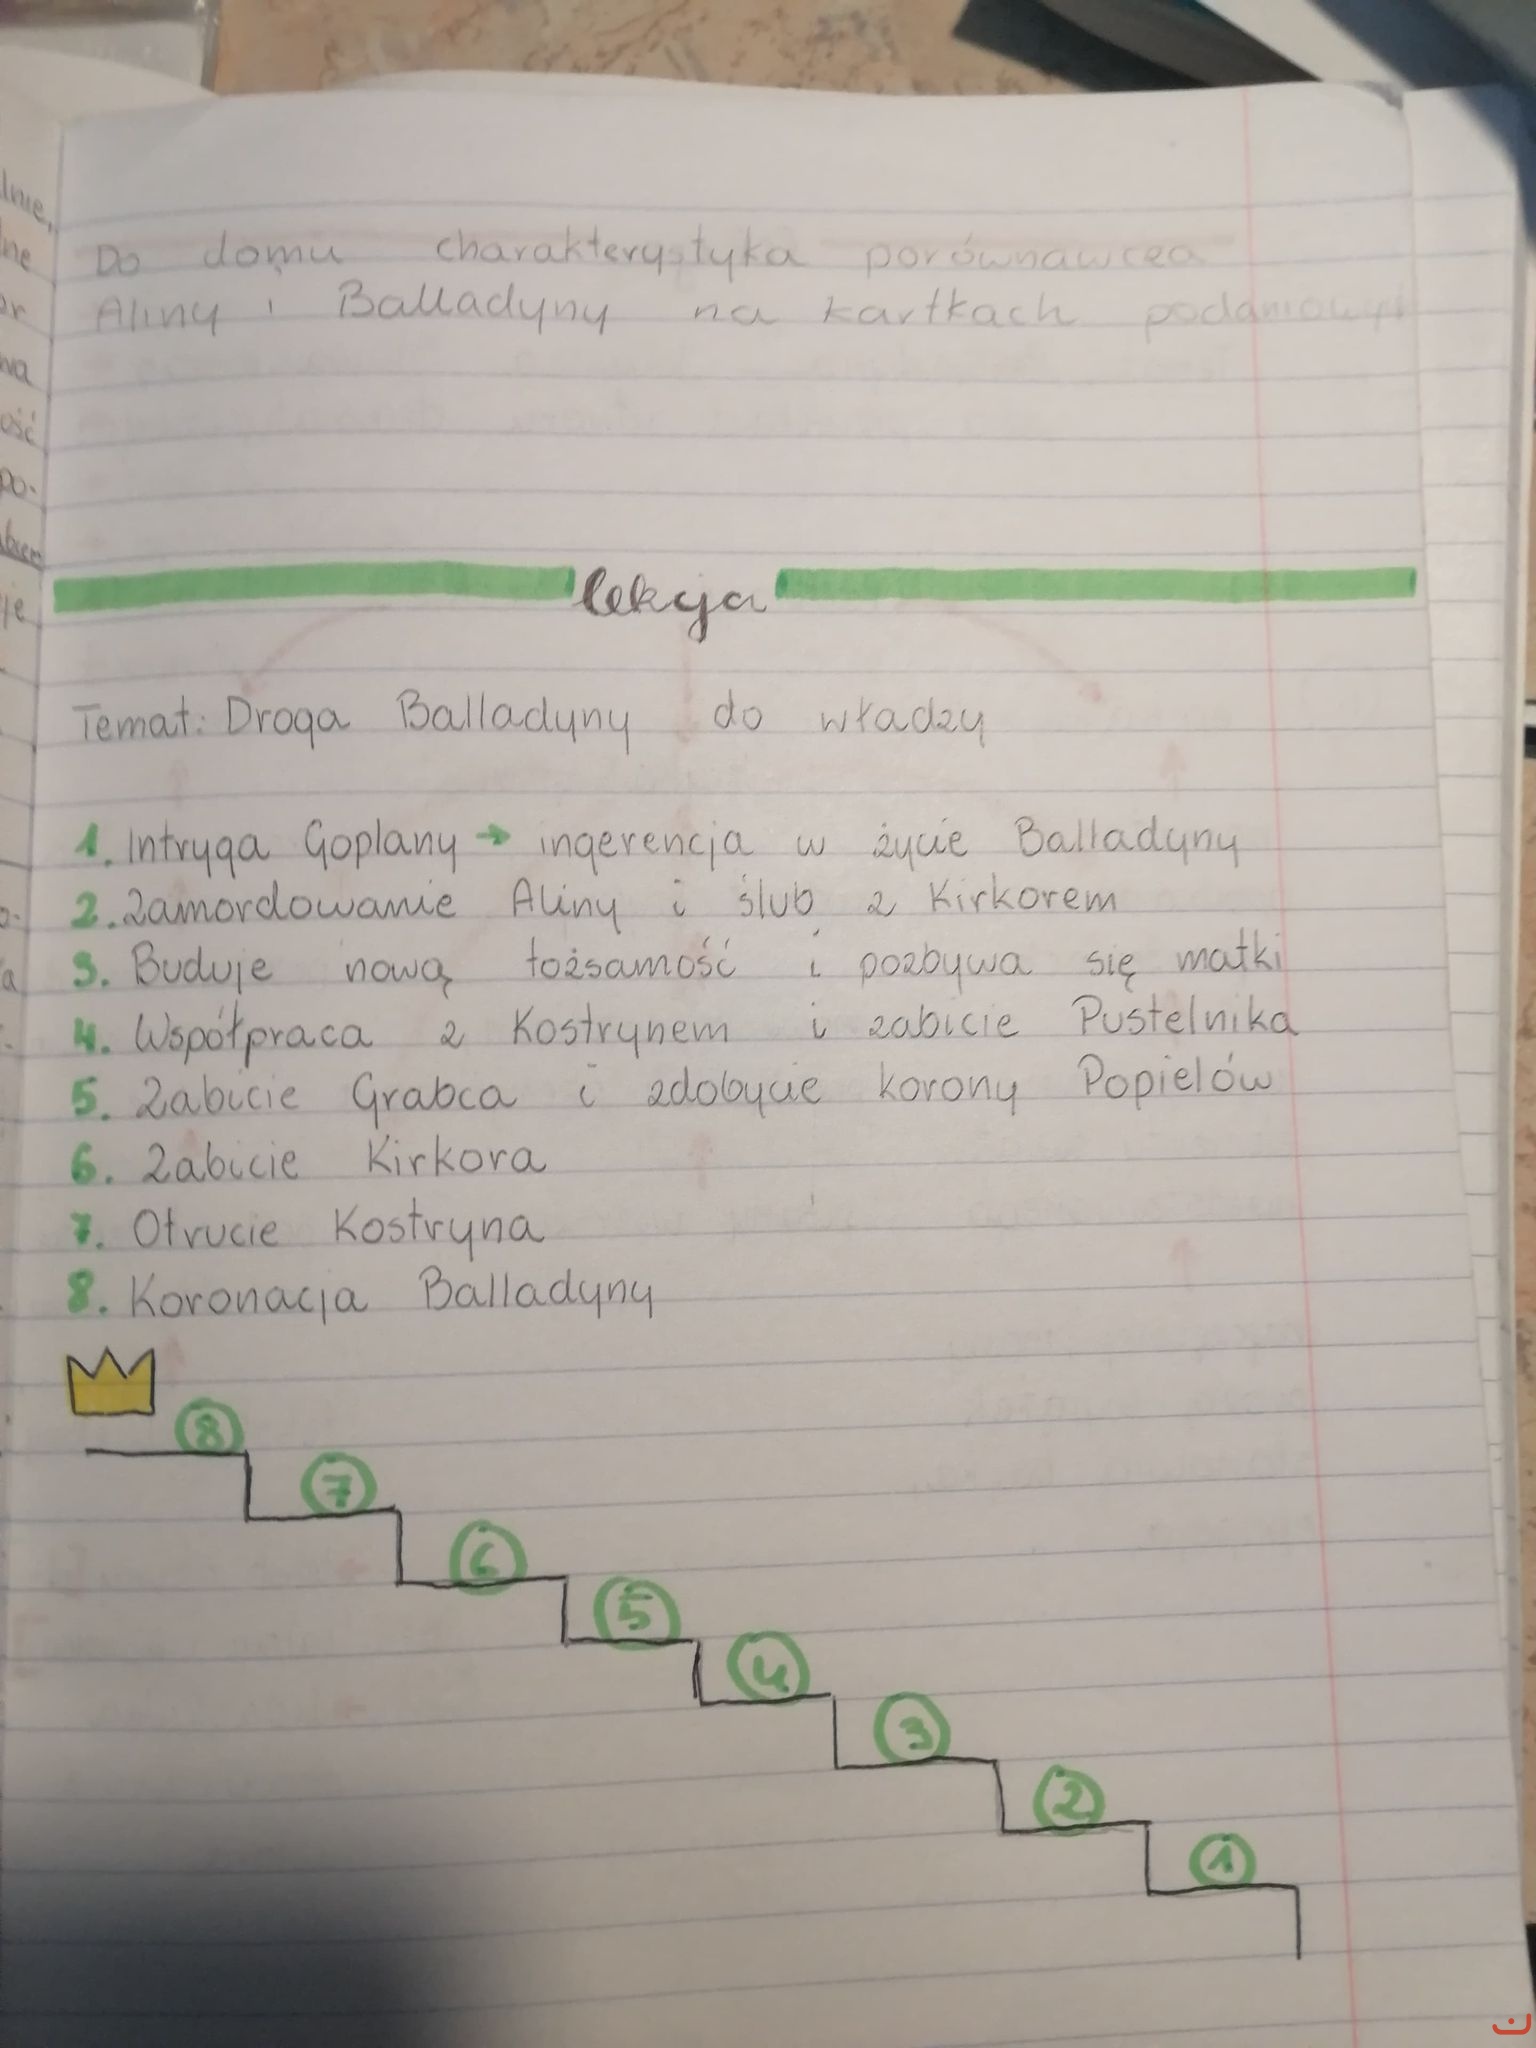 Do domu charakterystyka porównawcza
Aliny i Balladyny na kartkach podaniowych
lekcja
Temat: Droga Balladyny do władzy
1. Intryga Goplany → ingerencja w życie Balladyny
2. Zamordowanie Aliny i ślub z Kirkorem
3. Buduje nową tożsamość i pozbywa się matki
4. Współpraca z Kostrynem i zabicie Pustelnika
5. Zabicie Grabca i zdobycie korony Popielów
6. Zabicie Kirkora
7. Otrucie Kostryna
8. Koronacja Balladyny
8
7
6
5
4
3
2
1